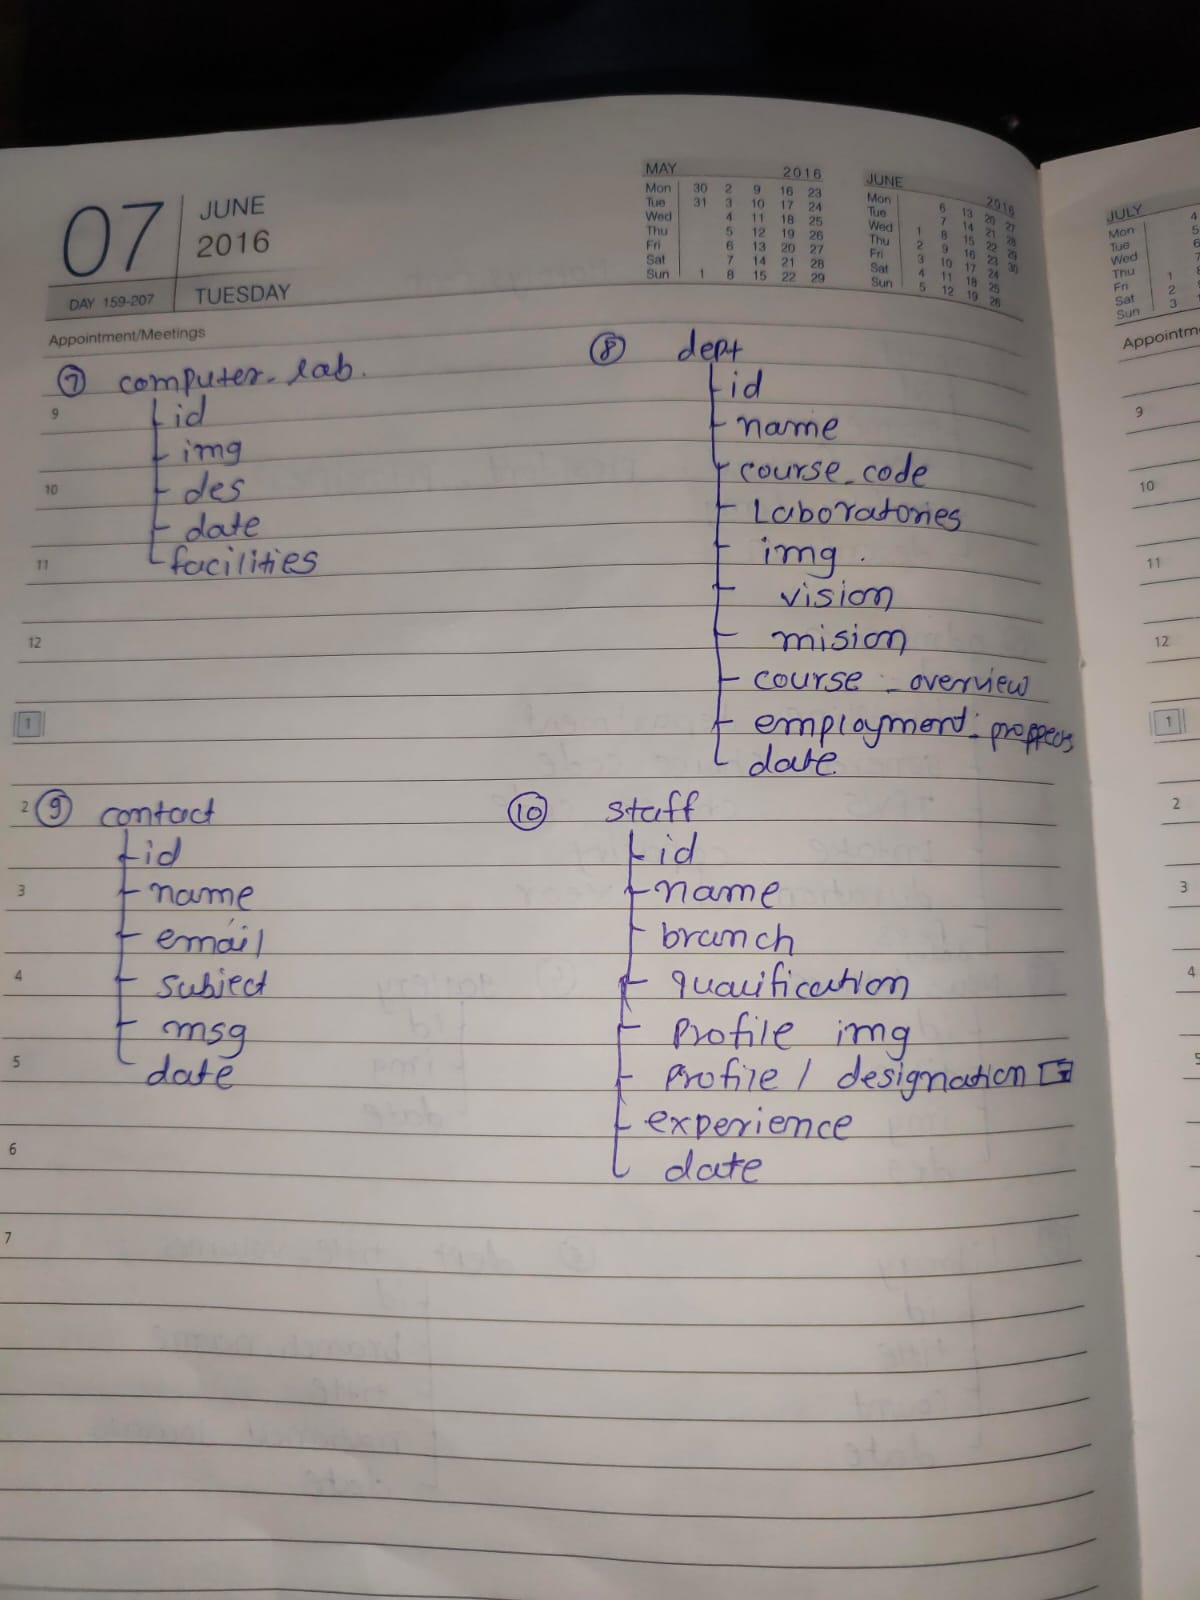 07
JUNE
2016
DAY 159-207
TUESDAY
MAY 2016
Mon 30 2 9 16 23
Tue 31 3 10 17 24
Wed 4 11 18 25
Thu 5 12 19 26
Fri 6 13 20 27
Sat 7 14 21 28
Sun 1 8 15 22 29
JUNE 2016
Mon 6 13 20 27
Tue 7 14 21 28
Wed 1 8 15 22 29
Thu 2 9 16 23 30
Fri 3 10 17 24
Sat 4 11 18 25
Sun 5 12 19 26
Appointment/Meetings
7 computer_lab.
id
img
des
date
facilities
8 dept
id
name
course_code
Laboratories
img.
vision
mision
course_overview
employment_
date
9 contact
id
name
email
subject
msg
date
10 staff
id
name
branch
qualification
Profile img
Profile / designation
experience
date
9
10
11
12
1
2
3
4
5
6
7
JULY
Mon 4
Tue 5
Wed 6
Thu 7
Fri 1
Sat 2
Sun 3
Appointm
9
10
11
12
1
2
3
4
5